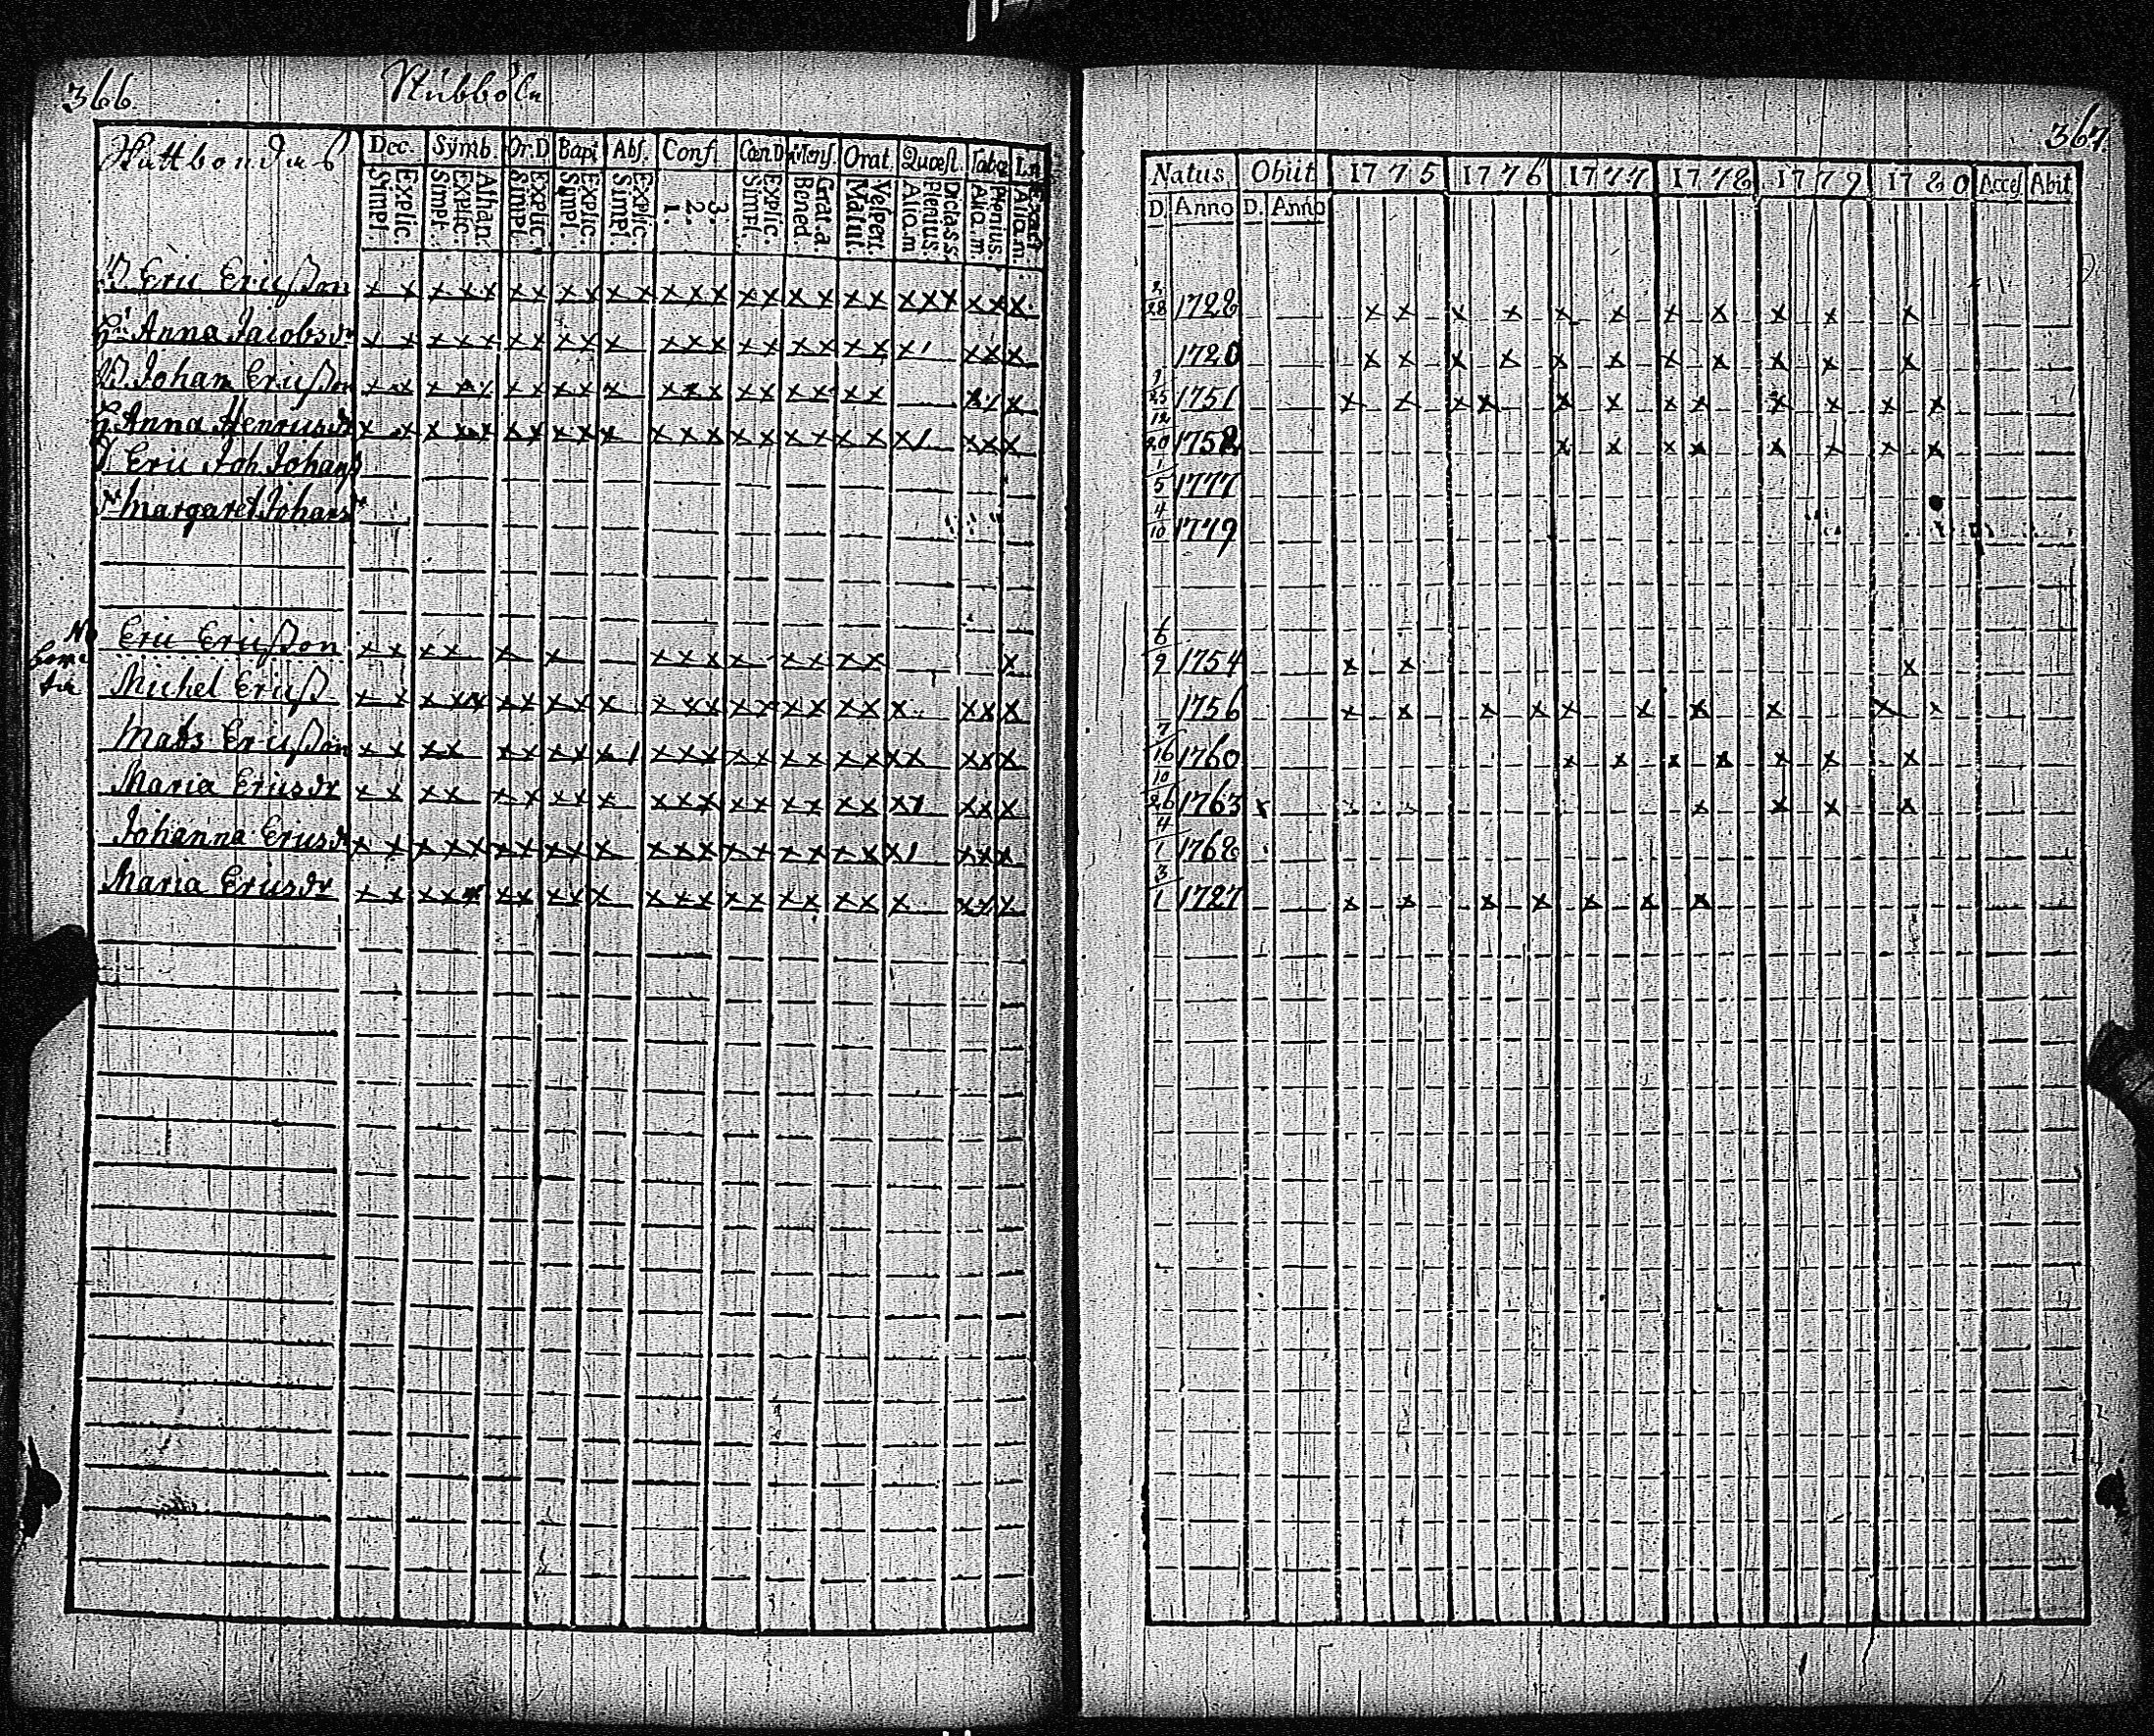 366
Stubböle
Skattbondes
Dec. Symb. Or.D Bapt Abs. Conf. CœnD Mens. Orat. Quæst. Tabœ
Simpl. Explic. Simpl. Explic. Athan. Simpl. Explic. Simpl. Explic. Simpl. Explic. 1. 2. 3. Simpl. Explic. Bened. Grat.a Matut. Vesper. Alio.m Plenius. Dicta.s.s. Alio.m Plenius. Alio.m Exact.
B Eric Ericsson x x x x x x x x x x x x x x x x x x x x x x x x x x
H. Anna Jacobsdr x x x x x x x x x x x x x x x x x x x x x x x
B Johan Ericsson x x x x x x x x x x x x x x x x x x x x x
H Anna Henricsdr x x x x x x x x x x x x x x x x x x x x x x x
Eric Joh Johans
Margaret Johansdr
Eric Ericsson x x x x x x x x x x x x x x x x
Michel Ericss x x x x x x x x x x x x x x x x x x x x x x x
Mats Ericsson x x x x x x x x x x x x x x x x x x x x x x x
Maria Ericsdr x x x x x x x x x x x x x x x x x x x x x x
Johanna Ericsdr x x x x x x x x x x x x x x x x x x x x x x x
Maria Ericsdr x x x x x x x x x x x x x x x x x x x x x x x
367
Natus Obiit 1775 1776 1777 1778 1779 1780 Acces Abit
D. Anno D. Anno
2/28 1728 x x x x x x x x x x x
1720 x x x x x x x x x x x
1/25 1751 x x x x x x x x x x x x
12/20 1758 x x x x x x x x
1/5 1777
4/10 1779
6/9 1754 x x x
1756 x x x x x x x x x x
7/16 1760 x x x x x x x
10/26 1763 x x x x
4/1 1768
3/1 1727 x x x x x x x